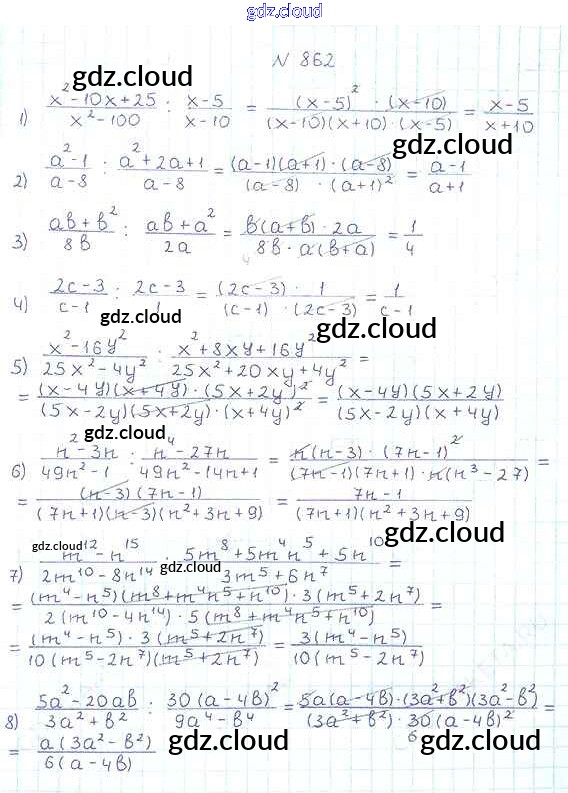 gdz.cloud
N 862
gdz.cloud
1) (x²-10x+25)/(x²-100) : (x-5)/(x-10) = ((x-5)² · (x-10))/((x-10)(x+10) · (x-5)) = (x-5)/(x+10)
gdz.cloud gdz.cloud
2) (a²-1)/(a-8) : (a²+2a+1)/(a-8) = ((a-1)(a+1) · (a-8))/((a-8) · (a+1)²) = (a-1)/(a+1)
gdz.cloud
3) (ab+b²)/(8b) : (ab+a²)/(2a) = (b(a+b) · 2a)/(8b · a(b+a)) = 1/4
gdz.cloud
4) (2c-3)/(c-1) : (2c-3)/1 = ((2c-3) · 1)/((c-1) · (2c-3)) = 1/(c-1)
gdz.cloud gdz.cloud
5) (x²-16y²)/(25x²-4y²) : (x²+8xy+16y²)/(25x²+20xy+4y²) =
= ((x-4y)(x+4y) · (5x+2y)²)/((5x-2y)(5x+2y) · (x+4y)²) = ((x-4y)(5x+2y))/((5x-2y)(x+4y))
gdz.cloud gdz.cloud
6) (n²-3n)/(49n²-1) : (n⁴-27n)/(49n²-14n+1) = (n(n-3) · (7n-1)²)/((7n-1)(7n+1) · n(n³-27)) =
= ((n-3)(7n-1))/((7n+1)(n-3)(n²+3n+9)) = (7n-1)/((7n+1)(n²+3n+9))
gdz.cloud gdz.cloud
7) (m¹²-n¹⁵)/(2m¹⁰-8n¹⁴) : (5m⁸+5m⁴n⁵+5n¹⁰)/(3m⁵+6n⁷) =
= ((m⁴-n⁵)(m⁸+m⁴n⁵+n¹⁰) · 3(m⁵+2n⁷))/(2(m¹⁰-4n¹⁴) · 5(m⁸+m⁴n⁵+n¹⁰)) =
= ((m⁴-n⁵) · 3(m⁵+2n⁷))/(10(m⁵-2n⁷)(m⁵+2n⁷)) = (3(m⁴-n⁵))/(10(m⁵-2n⁷))
gdz.cloud gdz.cloud
8) (5a²-20ab)/(3a²+b²) : (30(a-4b)²)/(9a⁴-b⁴) = (5a(a-4b)·(3a²+b²)(3a²-b²))/((3a²+b²)·30(a-4b)²) =
6
= (a(3a²-b²))/(6(a-4b))
gdz.cloud gdz.cloud